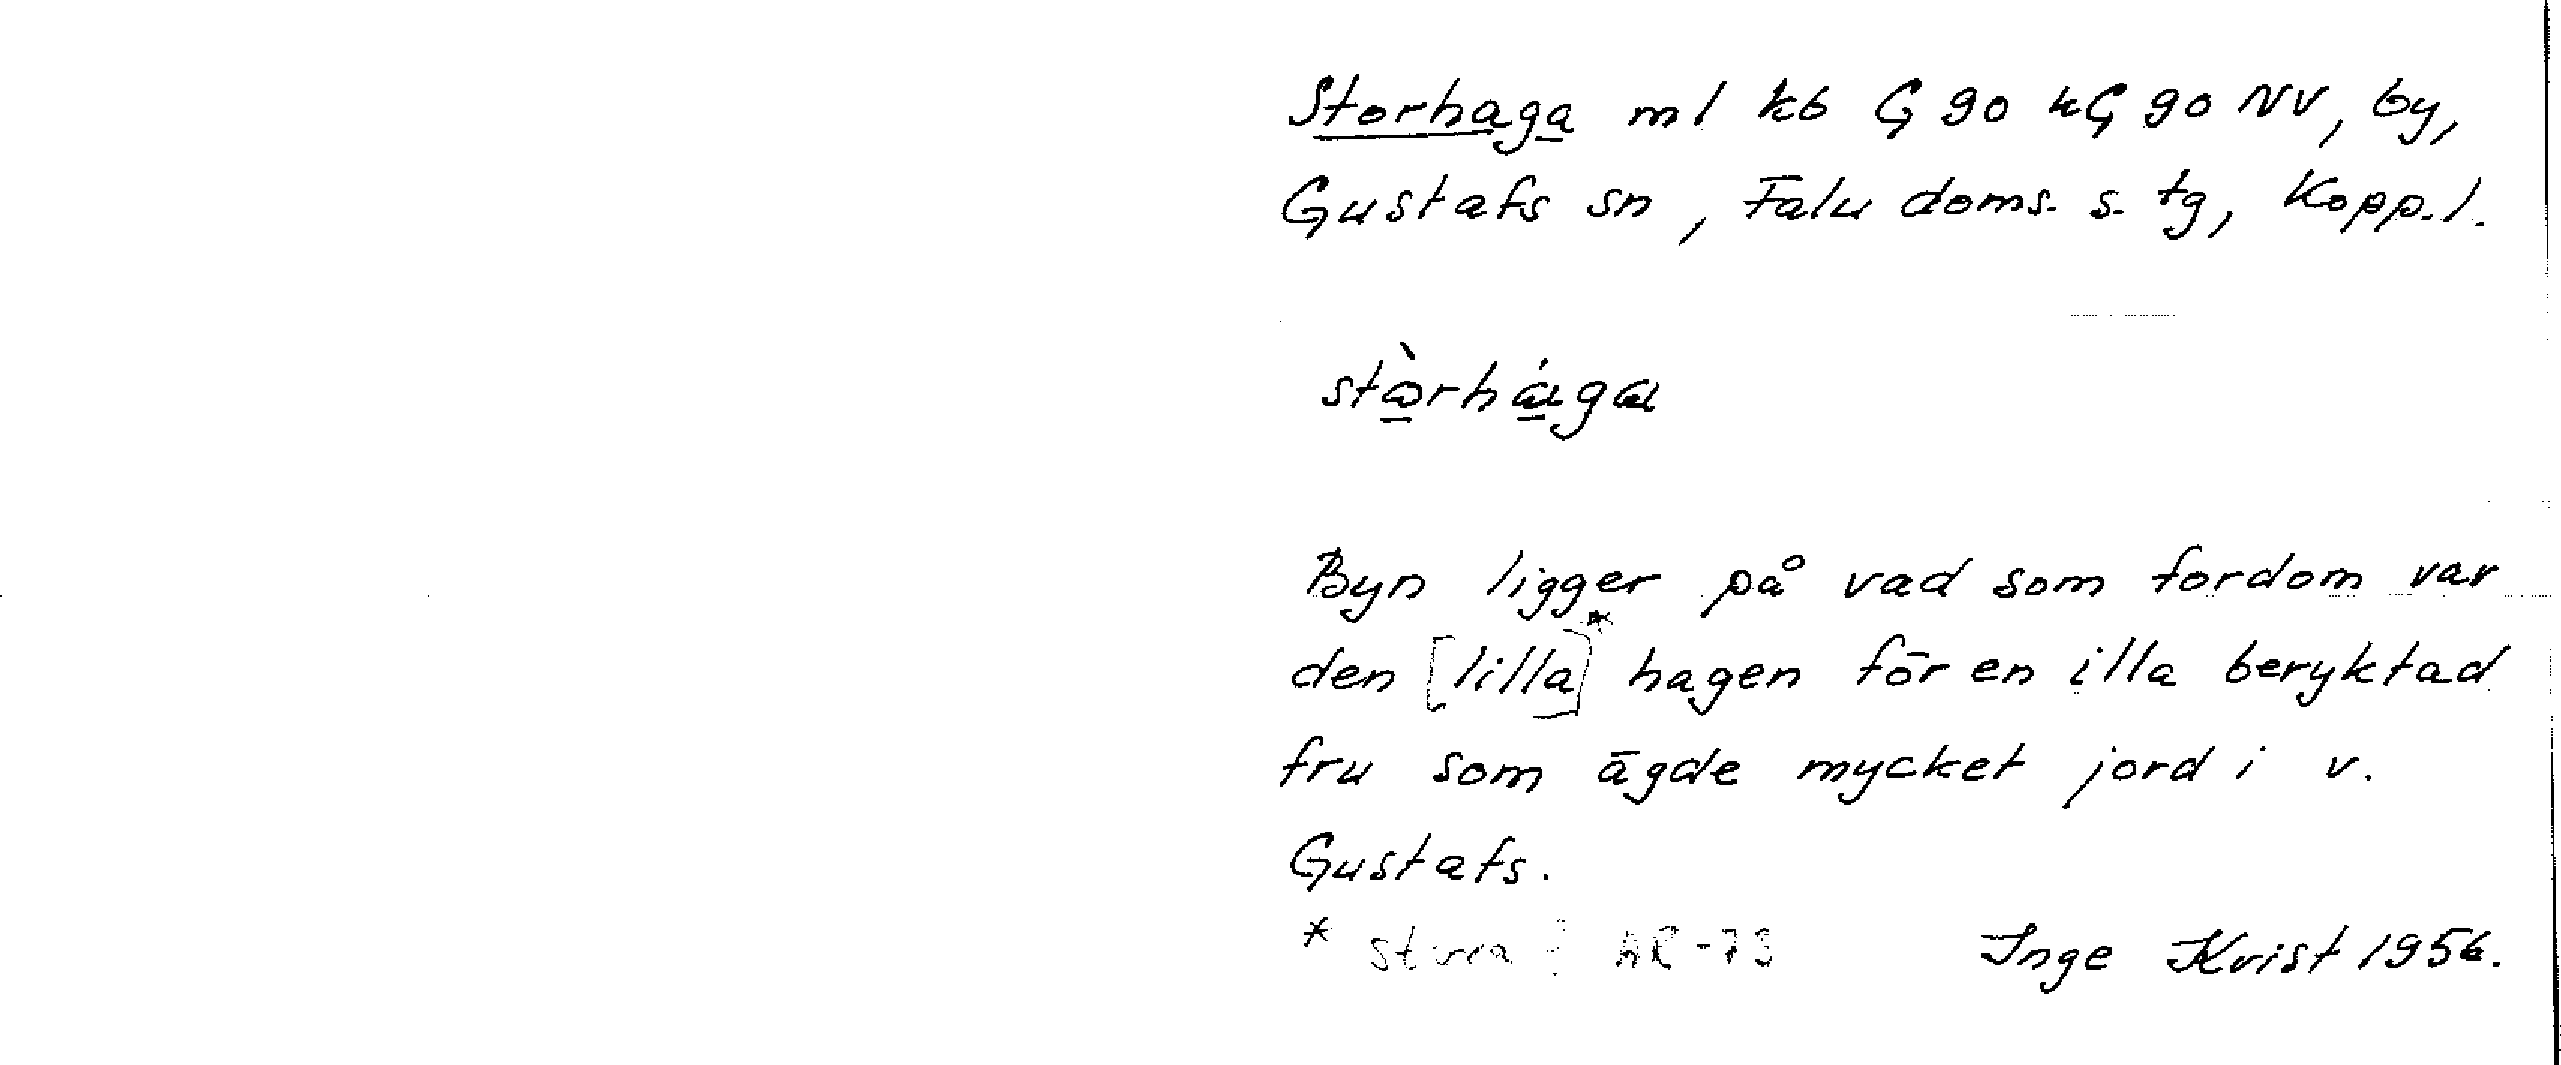 Storhaga ml kb G 90 kG 90 NV, by,
Gustafs sn, Falu doms. s. tg, Kopp.l.
stòrhága
Byn ligger på vad som fordom var
den [lilla]* hagen för en illa beryktad
fru som ägde mycket jord i v.
Gustafs.
* stora AR-73 Inge Kvist 1956.